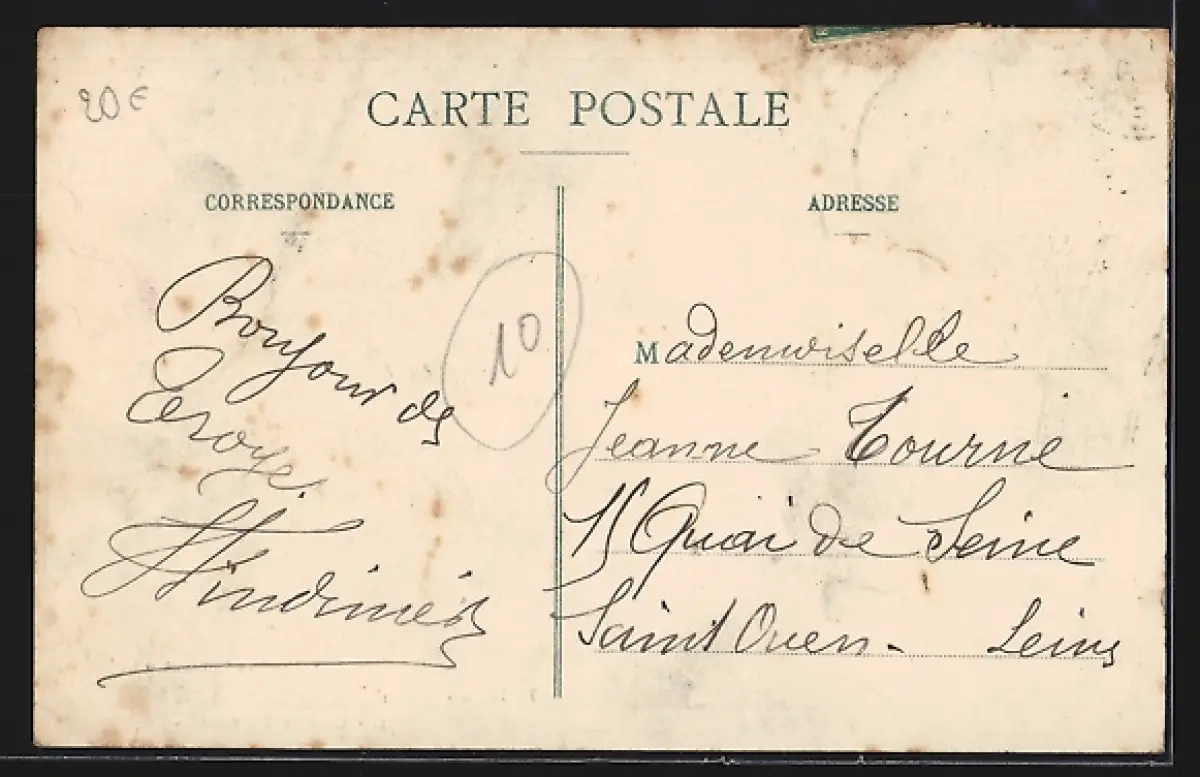 20€
CARTE POSTALE
CORRESPONDANCE
ADRESSE
Bonjour de
10
Mademoiselle
Jeanne Tourné
15 Quai de Seine
Saint Ouen - Seine